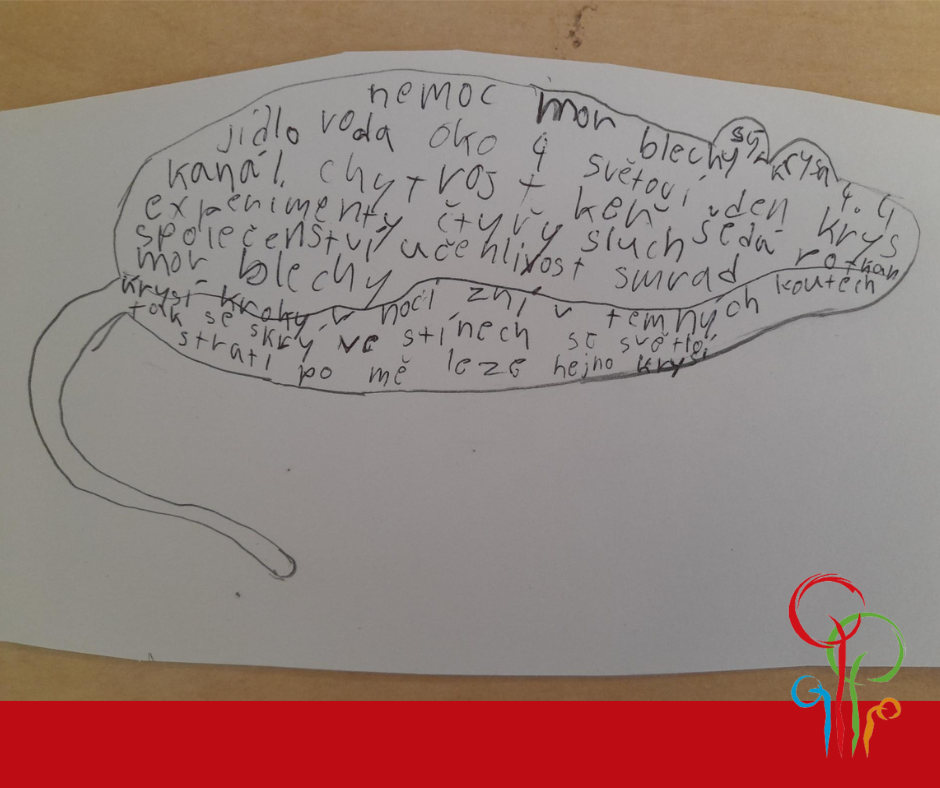 nemoc mor
jídlo voda oko 4 blechy sýr krysa
kanál chytrost světoví den 4.4
experimenty čtyřy keř šedá krys
společenství učenlivost sluch potkan
mor blechy smrad
krysí kroky v noci zní v temných koutech
tak se skrý ve stínech se světlei
stratí po mě leze hejno krysí